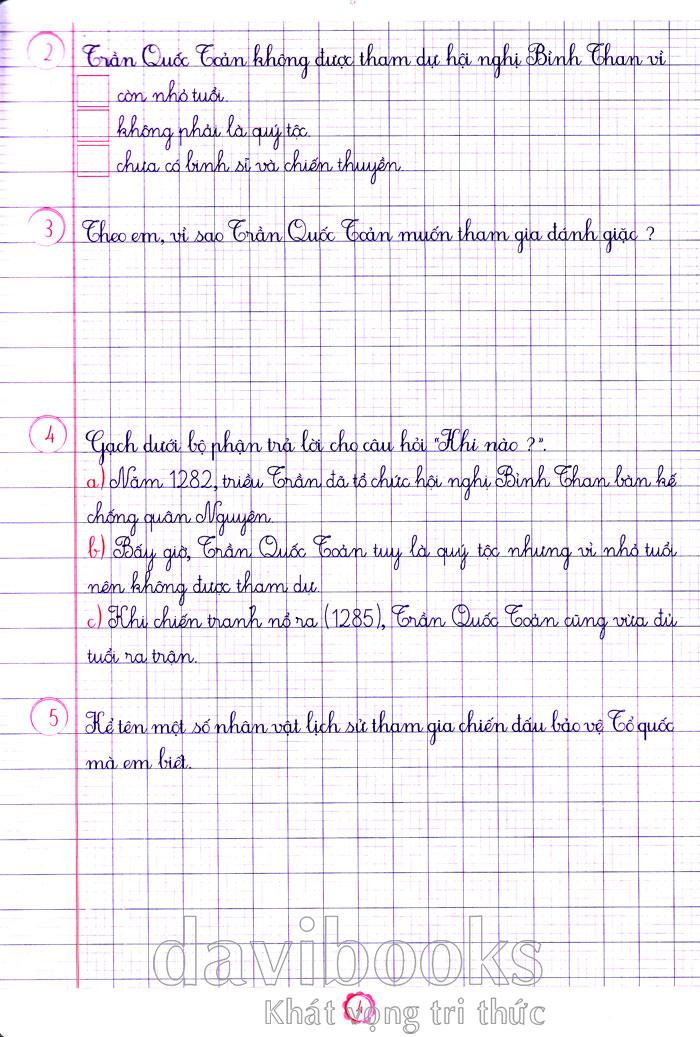 2 Trần Quốc Toản không được tham dự hội nghị Bình Than vì
còn nhỏ tuổi.
không phải là quý tộc.
chưa có binh sĩ và chiến thuyền.
3 Theo em, vì sao Trần Quốc Toản muốn tham gia đánh giặc ?
4 Gạch dưới bộ phận trả lời cho câu hỏi "Khi nào ?".
a) Năm 1282, triều Trần đã tổ chức hội nghị Bình Than bàn kế
chống quân Nguyên.
b) Bấy giờ, Trần Quốc Toản tuy là quý tộc nhưng vì nhỏ tuổi
nên không được tham dự.
c) Khi chiến tranh nổ ra (1285), Trần Quốc Toản cũng vừa đủ
tuổi ra trận.
5 Kể tên một số nhân vật lịch sử tham gia chiến đấu bảo vệ Tổ quốc
mà em biết.
davibooks
Khát vọng tri thức
4